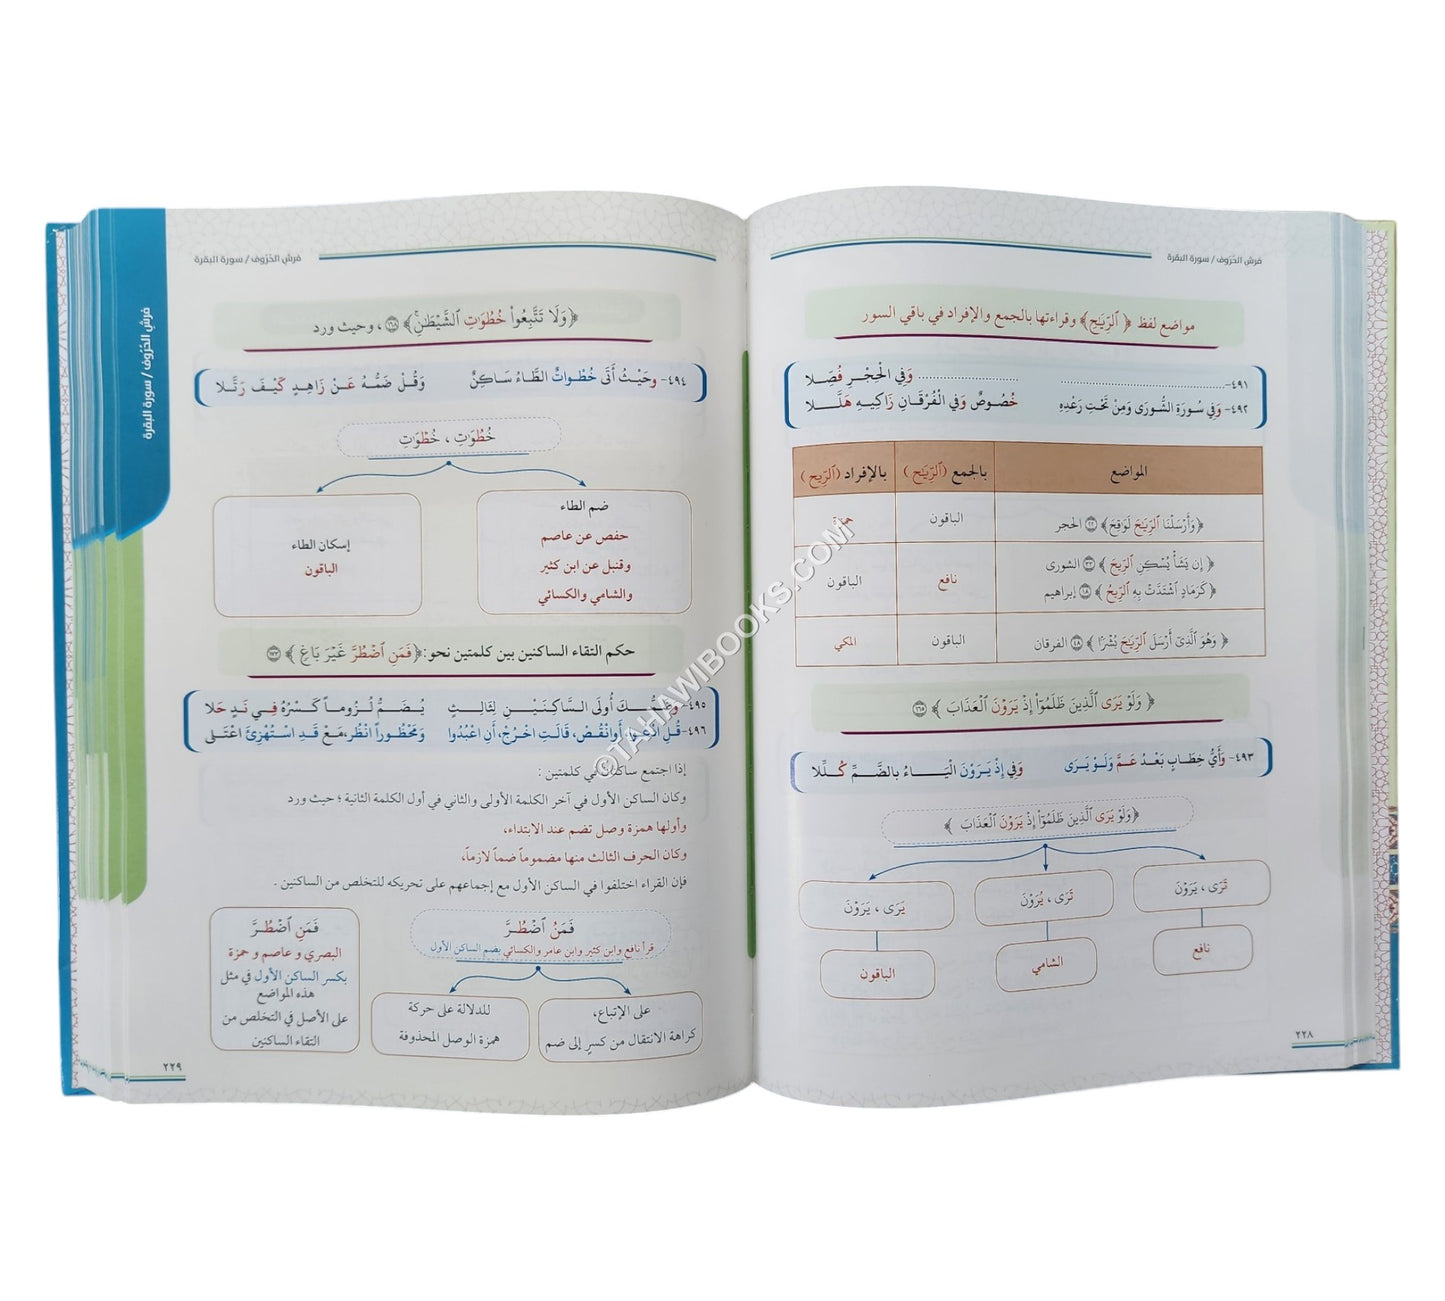 فرش الحُرُوف / سورة البقرة
مواضع لفظ ﴿ ٱلرِّيَٰحِ ﴾ وقراءتها بالجمع والإفراد في باقي السور
٤٩١- ........................................ ........................ وَفِي الْحِجْرِ فُصِّلا
٤٩٢- وَفِي سُورَةِ الشُّورَى وَمِنْ تَحْتِ رَعْدِهِ خُصُوصٌ وَفِي الْفُرْقَانِ زَاكِيهِ هَلَّلا
المواضع بالجمع (ٱلرِّيَٰح) بالإفراد (ٱلرِّيح)
﴿ وَأَرْسَلْنَا ٱلرِّيَٰحَ لَوَٰقِحَ ﴾ ٢٢ الحجر الباقون حمزة
﴿ إِن يَشَأْ يُسْكِنِ ٱلرِّيحَ ﴾ ٣٣ الشورى
﴿ كَرَمَادٍ ٱشْتَدَّتْ بِهِ ٱلرِّيحُ ﴾ ١٨ إبراهيم نافع الباقون
﴿ وَهُوَ ٱلَّذِىٓ أَرْسَلَ ٱلرِّيَٰحَ بُشْرًا ﴾ ٤٨ الفرقان الباقون المكي
﴿ وَلَوْ يَرَى ٱلَّذِينَ ظَلَمُوٓا۟ إِذْ يَرَوْنَ ٱلْعَذَابَ ﴾ ١٦٥
٤٩٣- وَأَيُّ خِطَابٍ بَعْدُ عَمَّ وَلَوْ يَرَى وَفِي إِذْ يَرَوْنَ الْيَاءُ بِالضَّمِّ كُلِّلا
﴿ وَلَوْ يَرَى ٱلَّذِينَ ظَلَمُوٓا۟ إِذْ يَرَوْنَ ٱلْعَذَابَ ﴾
تَرَى ، يَرَوْنَ
تَرَى ، يُرَوْنَ
يَرَى ، يَرَوْنَ
نافع
الشامي
الباقون
٢٢٨
فرش الحُرُوف / سورة البقرة
فرش الحُرُوف / سورة البقرة
﴿ وَلَا تَتَّبِعُوا۟ خُطُوَٰتِ ٱلشَّيْطَٰنِ ﴾ ١٦٨ ، وحيث ورد
٤٩٤- وحَيْثُ أَتَى خُطْواتٌ الطَّاءُ سَاكِنٌ وَقُلْ ضَمُّهُ عَنْ زَاهِدٍ كَيْفَ رَتَّلا
خُطُوَٰتِ ، خُطْوَٰتِ
ضم الطاء
حفص عن عاصم
وقنبل عن ابن كثير
والشامي والكسائي
إسكان الطاء
الباقون
حكم التقاء الساكنين بين كلمتين نحو: ﴿ فَمَنِ ٱضْطُرَّ غَيْرَ بَاغٍ ﴾ ١٧٣
٤٩٥- وَضَمُّكَ أُولَى السَّاكِنَيْنِ لِثَالِثٍ يُضَمُّ لُزُوماً كَسْرُهُ فِي نَدٍ حَلا
٤٩٦- قُلِ ادْعُوا، أَوانْقُصْ، قَالَتِ اخْرُجْ، أَنِ اعْبُدُوا وَمَحْظُوراً انْظُر، مَعْ قَدِ اسْتُهْزِئَ اعْتَلَى
إذا اجتمع ساكنان في كلمتين :
وكان الساكن الأول في آخر الكلمة الأولى والثاني في أول الكلمة الثانية ؛ حيث ورد
وأولها همزة وصل تضم عند الابتداء،
وكان الحرف الثالث منها مضموماً ضماً لازماً،
فإن القراء اختلفوا في الساكن الأول مع إجماعهم على تحريكه للتخلص من الساكنين .
فَمَنُ ٱضْطُرَّ
قرأ نافع وابن كثير وابن عامر والكسائي بضم الساكن الأول
على الإتباع،
كراهة الانتقال من كسرٍ إلى ضم
للدلالة على حركة
همزة الوصل المحذوفة
فَمَنِ ٱضْطُرَّ
البصري و عاصم و حمزة
بكسر الساكن الأول في مثل
هذه المواضع
على الأصل في التخلص من
التقاء الساكنين
٢٢٩
©TAHAWIBOOKS.COM